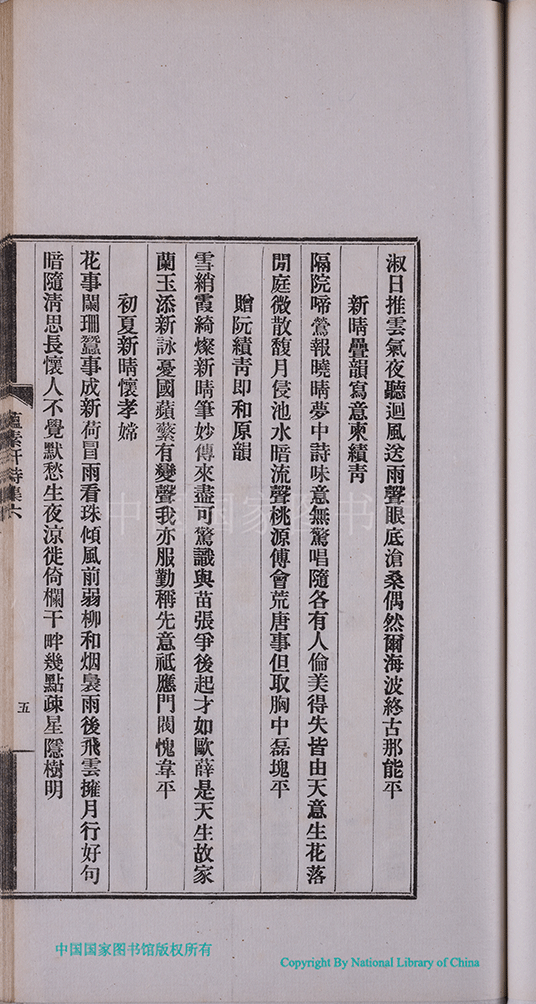 淑日推雲氣夜聽迴風送雨聲眼底滄桑偶然爾海波終古那能平
新晴疊韻寫意柬績青
隔院啼鶯報曉晴夢中詩味意無驚唱隨各有人倫美得失皆由天意生花落
閒庭微散馥月侵池水暗流聲桃源傅會荒唐事但取胸中磊塊平
贈阮績青即和原韻
雪綃霞綺燦新晴筆妙傳來盡可驚識與苗張爭後起才如歐薛是天生故家
蘭玉添新詠憂國蘋蘩有變聲我亦服勤稱先意祗應門閥愧韋平
初夏新晴懷孝嫦
花事闌珊蠶事成新荷冒雨看珠傾風前弱柳和烟裊雨後飛雲擁月行好句
暗隨淸思長懷人不覺默愁生夜涼徙倚欄干畔幾點疎星隱樹明
蘊素軒詩集六
五
中国国家图书馆
中国国家图书馆版权所有
Copyright By National Library of China